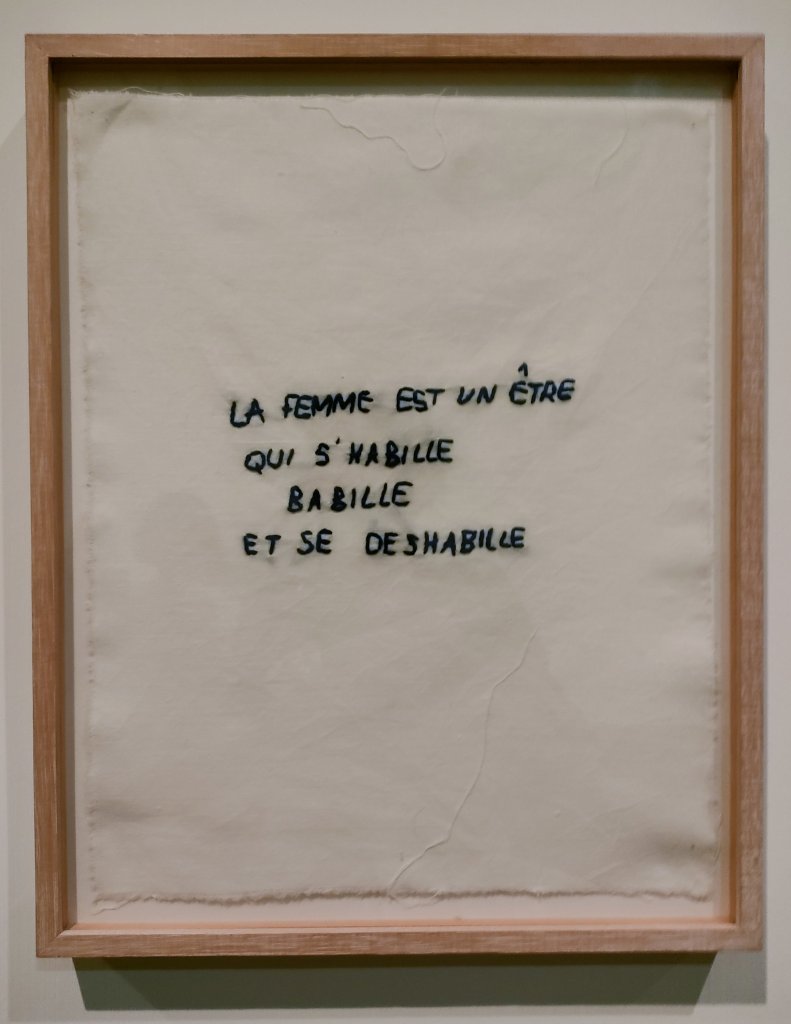 LA FEMME EST UN ÊTRE
QUI S'HABILLE
BABILLE
ET SE DESHABILLE